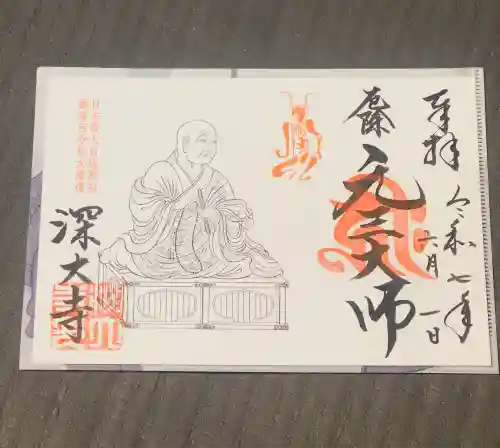 奉拝
令和七年
六月一日
元三大師
深大寺